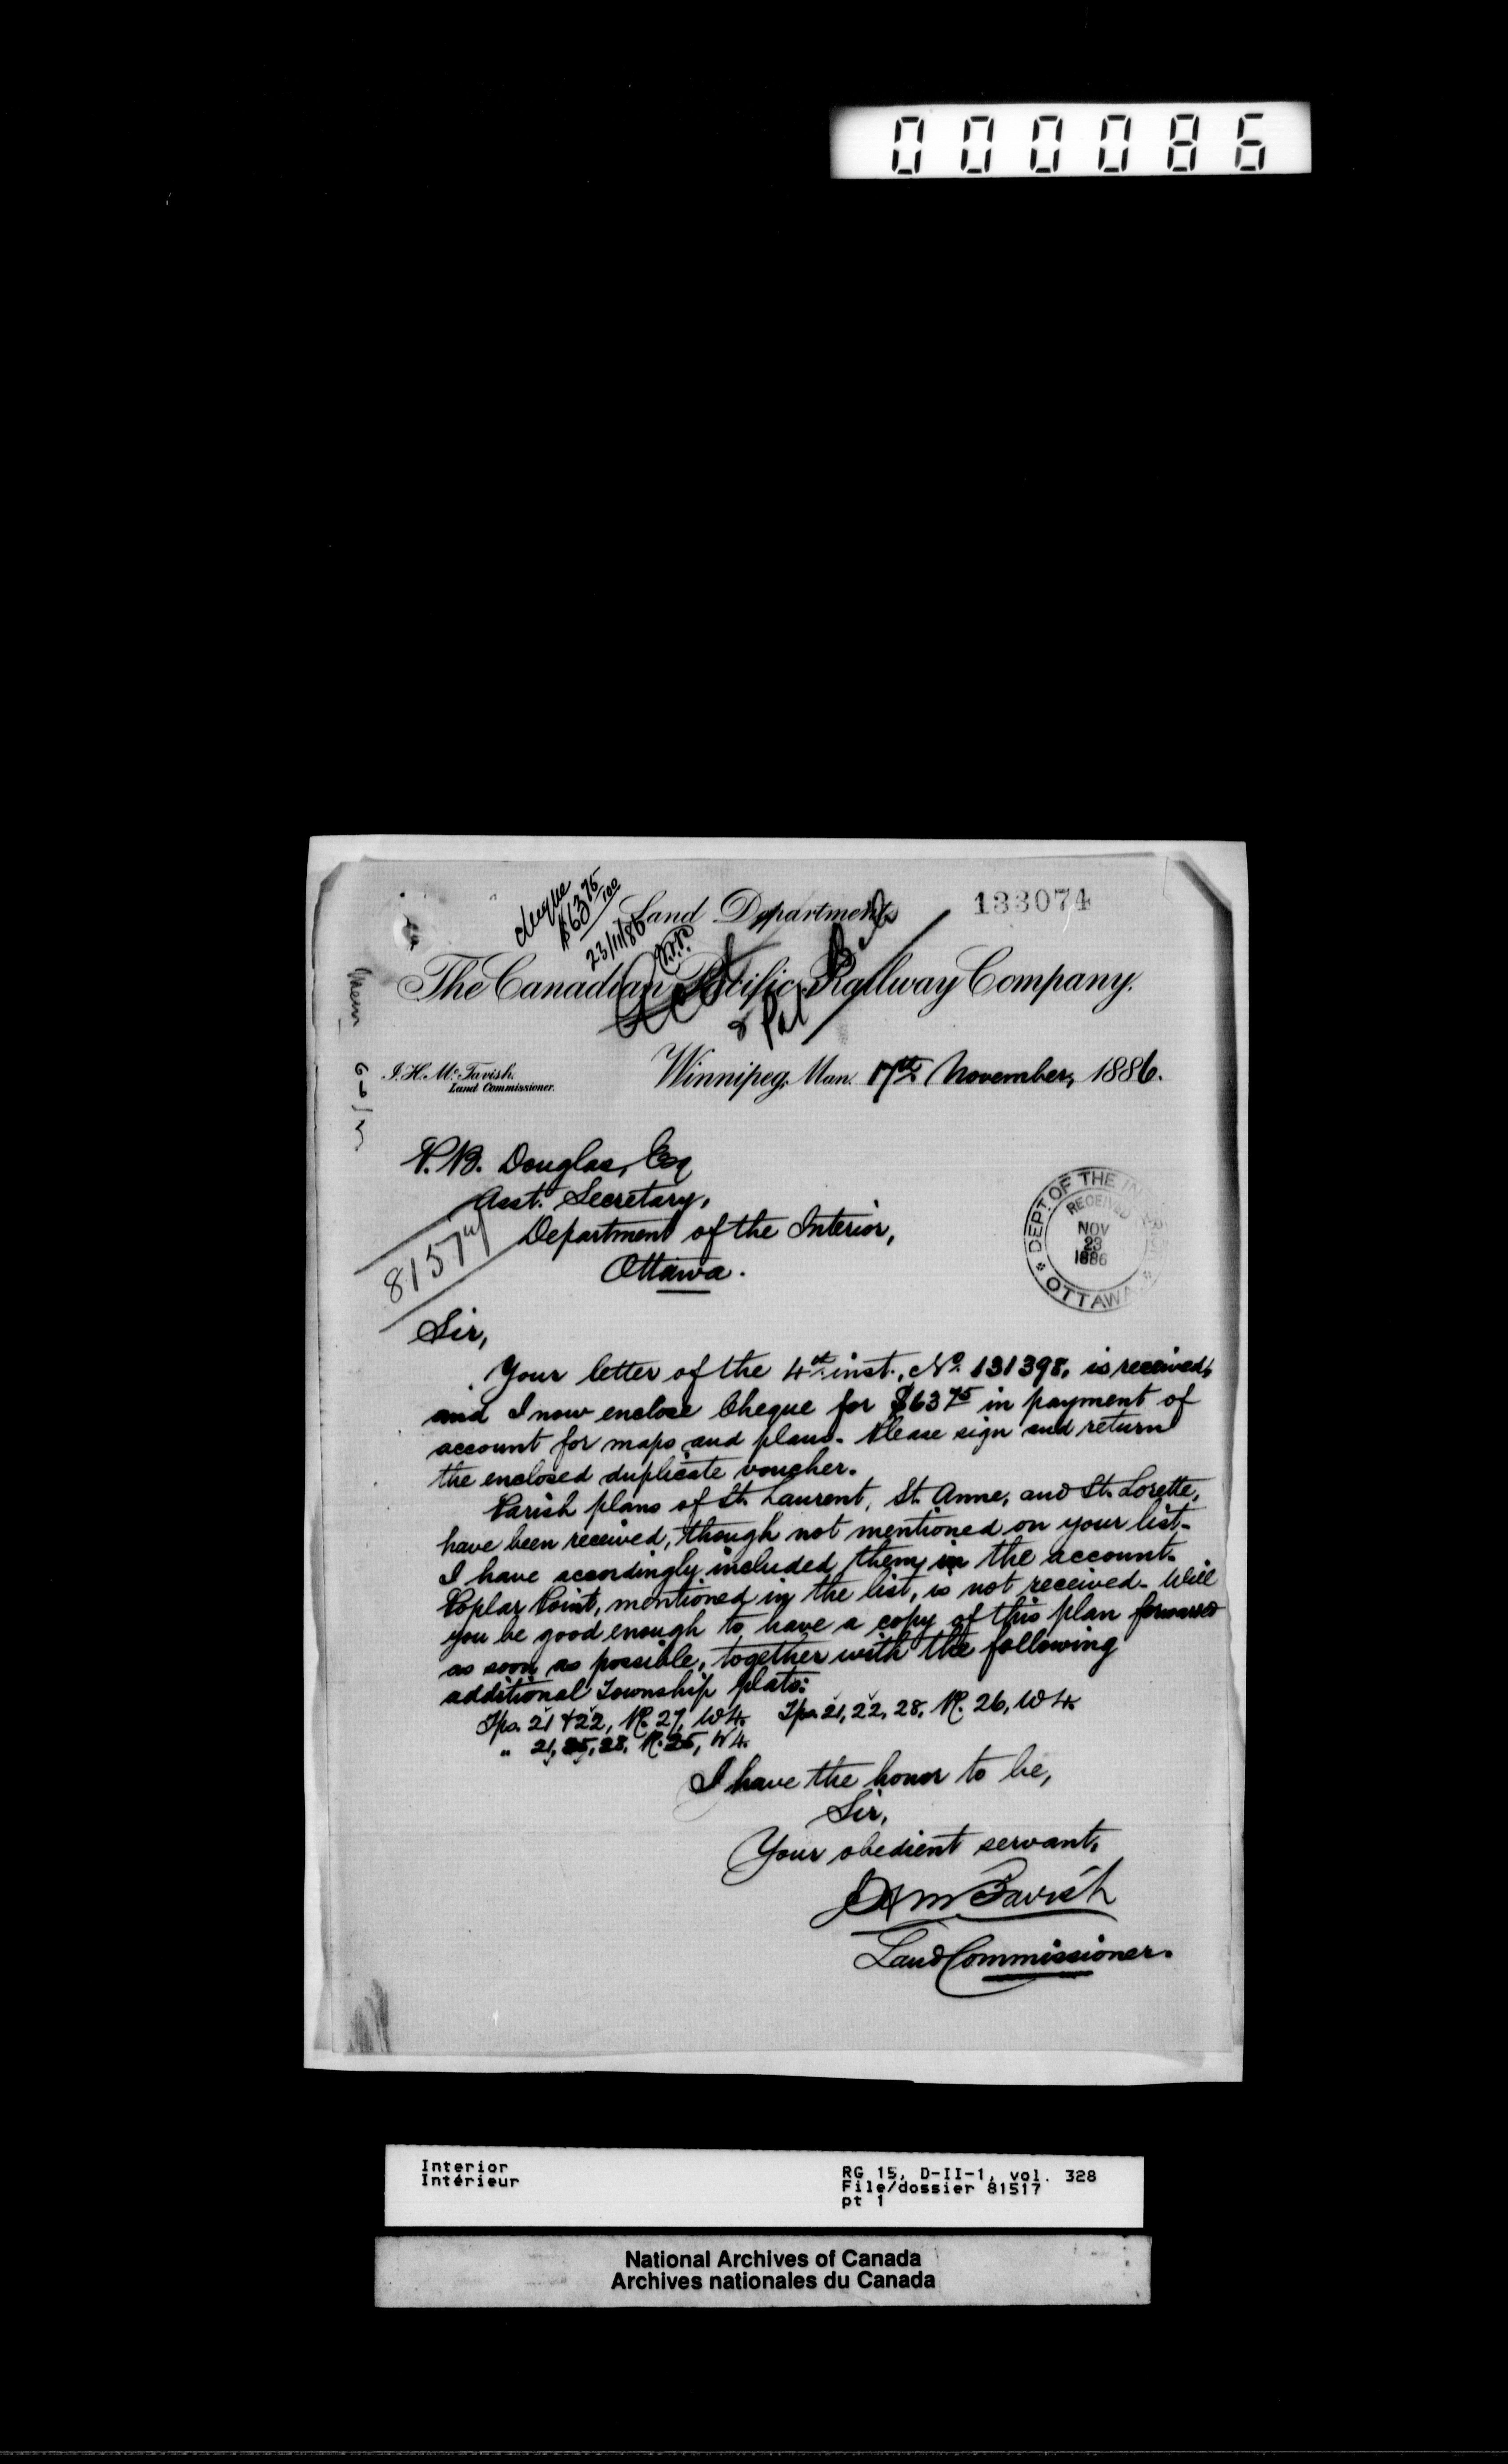 000086
cheque
$63 75/100
23/11/86
Land Department.
133074
The Canadian Pacific Railway Company.
J. H. McTavish.
Land Commissioner.
Winnipeg, Man. 17th November, 1886.
P. B. Douglas, Esq
Asst. Secretary,
Department of the Interior,
Ottawa.
81517
DEPT. OF THE INTERIOR
RECEIVED
NOV
23
1886
OTTAWA
Sir,
Your letter of the 4th inst., No. 131398, is received,
and I now enclose Cheque for $63 75 in payment of
account for maps and plans. Please sign and return
the enclosed duplicate voucher.
Parish plans of St. Laurent, St. Anne, and St. Lorette,
have been received, though not mentioned on your list.
I have accordingly included them in the account.
Poplar Point, mentioned in the list, is not received. Will
you be good enough to have a copy of this plan forwarded
as soon as possible, together with the following
additional Township plats:
Tps. 21 & 22, R. 27, W 4. Tps. 21, 22, 28, R. 26, W 4.
" 21, 25, 28, R. 25, W 4.
I have the honor to be,
Sir,
Your obedient servant,
J H McTavish
Land Commissioner.
Interior
Intérieur
RG 15, D-II-1, vol. 328
File/dossier 81517
pt 1
National Archives of Canada
Archives nationales du Canada